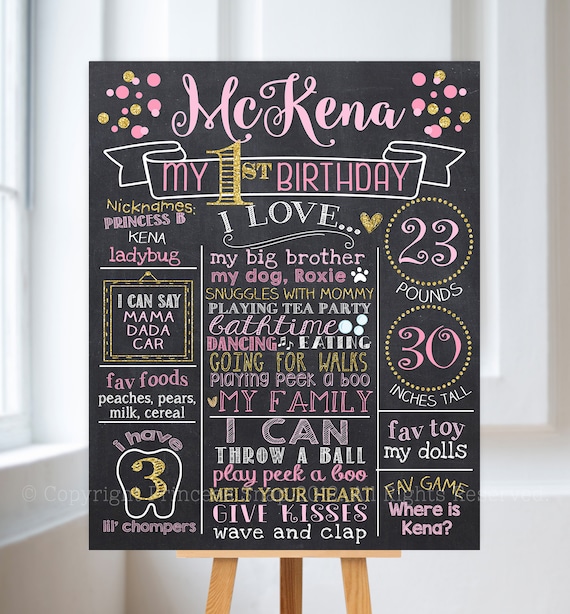 McKena
MY 1ST BIRTHDAY
Nicknames:
PRINCESS B
KENA
ladybug
I CAN SAY
MAMA
DADA
CAR
fav foods
peaches, pears,
milk, cereal
i have
3
lil' chompers
I LOVE...
my big brother
my dog, Roxie
SNUGGLES WITH MOMMY
PLAYING TEA PARTY
bathtime
DANCING EATING
GOING FOR WALKS
playing peek a boo
MY FAMILY
I CAN
THROW A BALL
play peek a boo
MELT YOUR HEART
GIVE KISSES
wave and clap
23
POUNDS
30
INCHES TALL
fav toy
my dolls
FAV GAME
Where is
Kena?
© Copyright
Rights Reserved